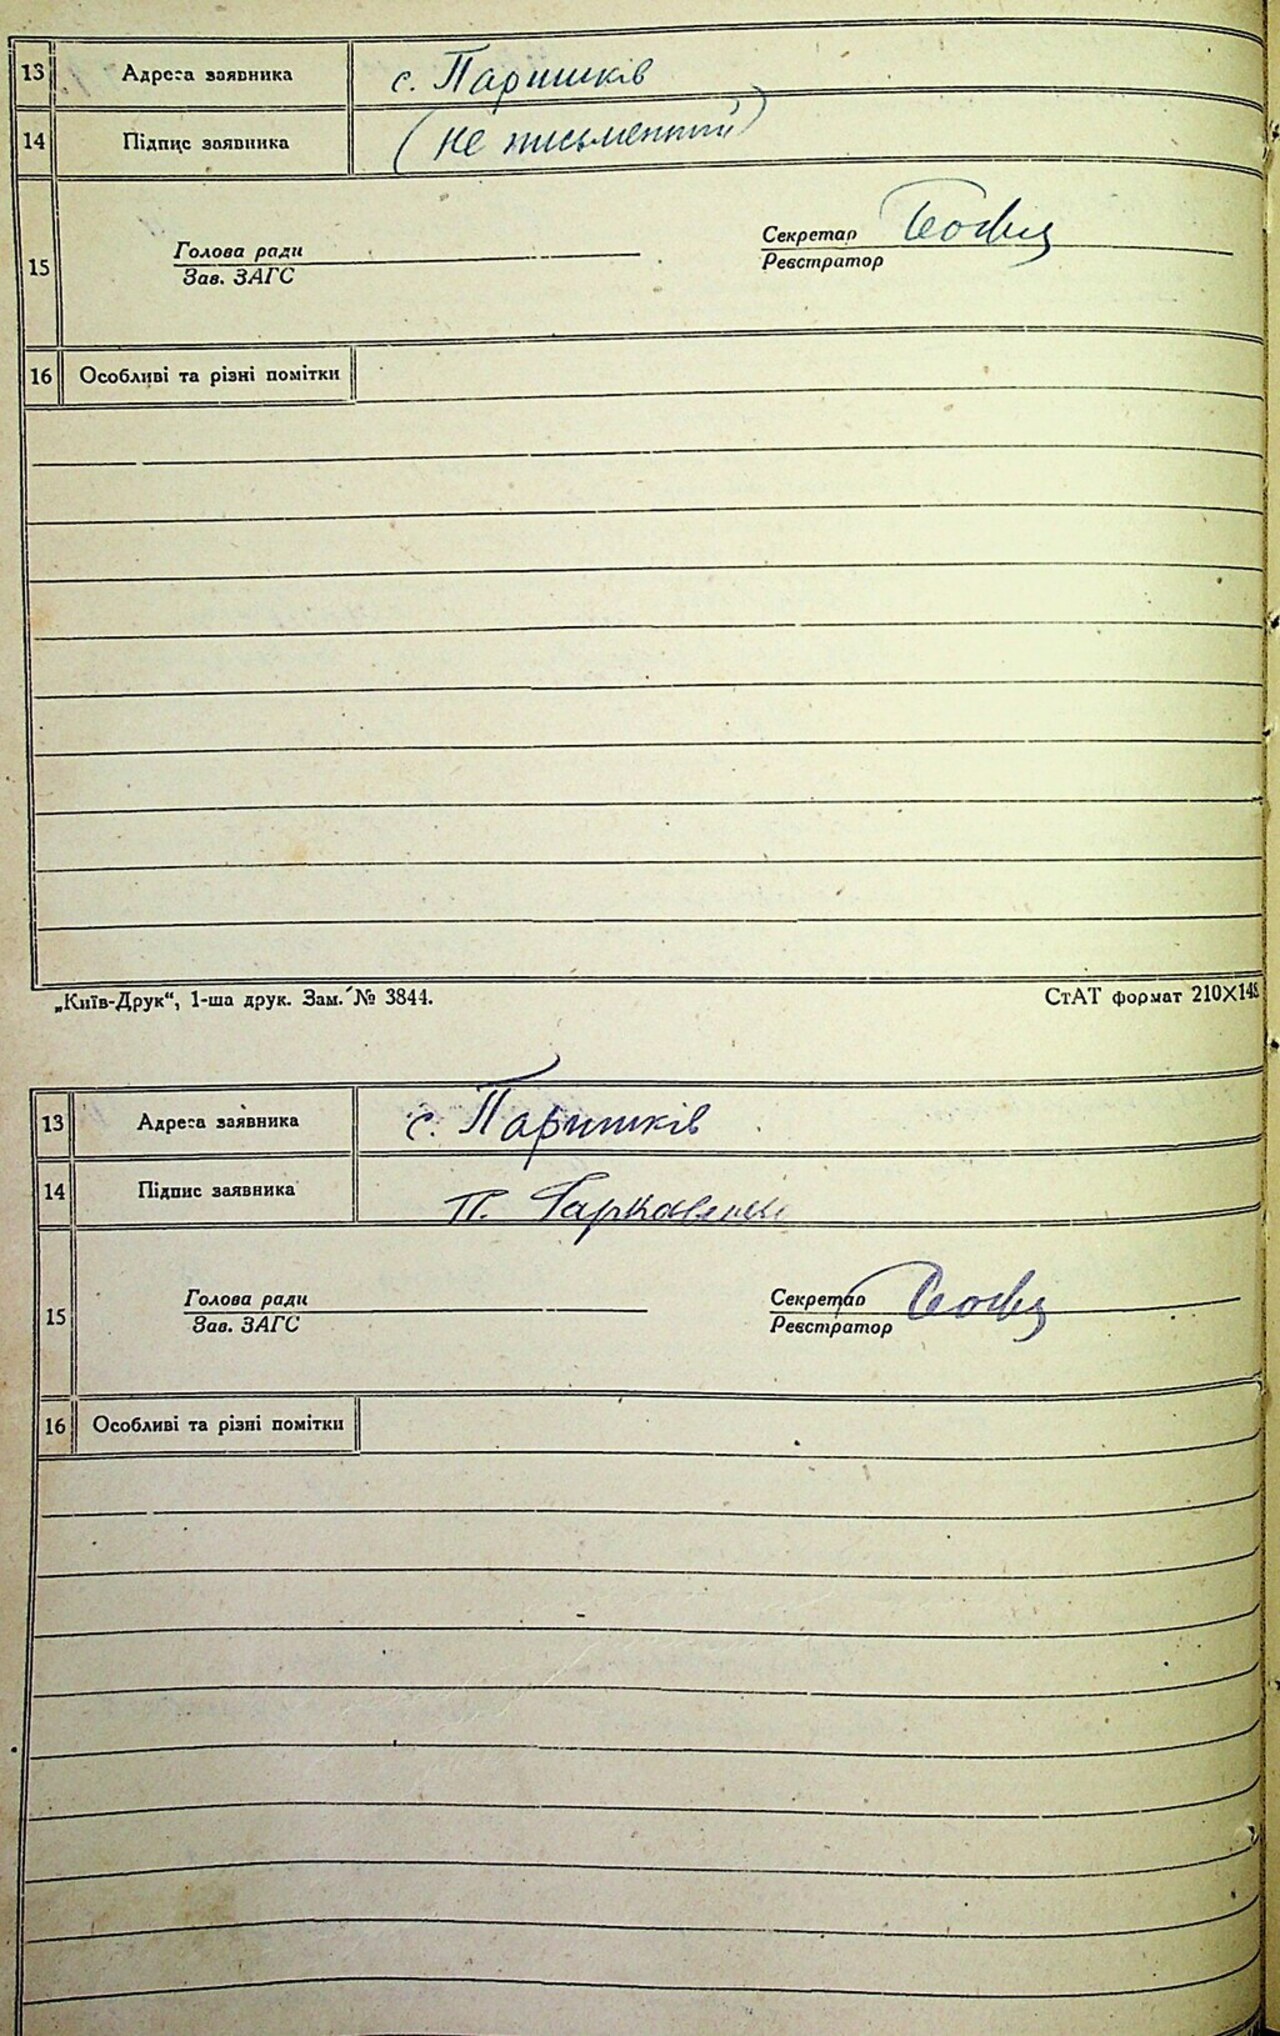 13 Адреса заявника с. Паришків
14 Підпис заявника (не письменний)
Голова ради Секретар
15
Зав. ЗАГС Реєстратор
16 Особливі та різні помітки
„Київ-Друк“, 1-ша друк. Зам. № 3844. СтАТ формат 210×148
13 Адреса заявника с. Паришків
14 Підпис заявника П. Гаркавенко
Голова ради Секретар
15
Зав. ЗАГС Реєстратор
16 Особливі та різні помітки